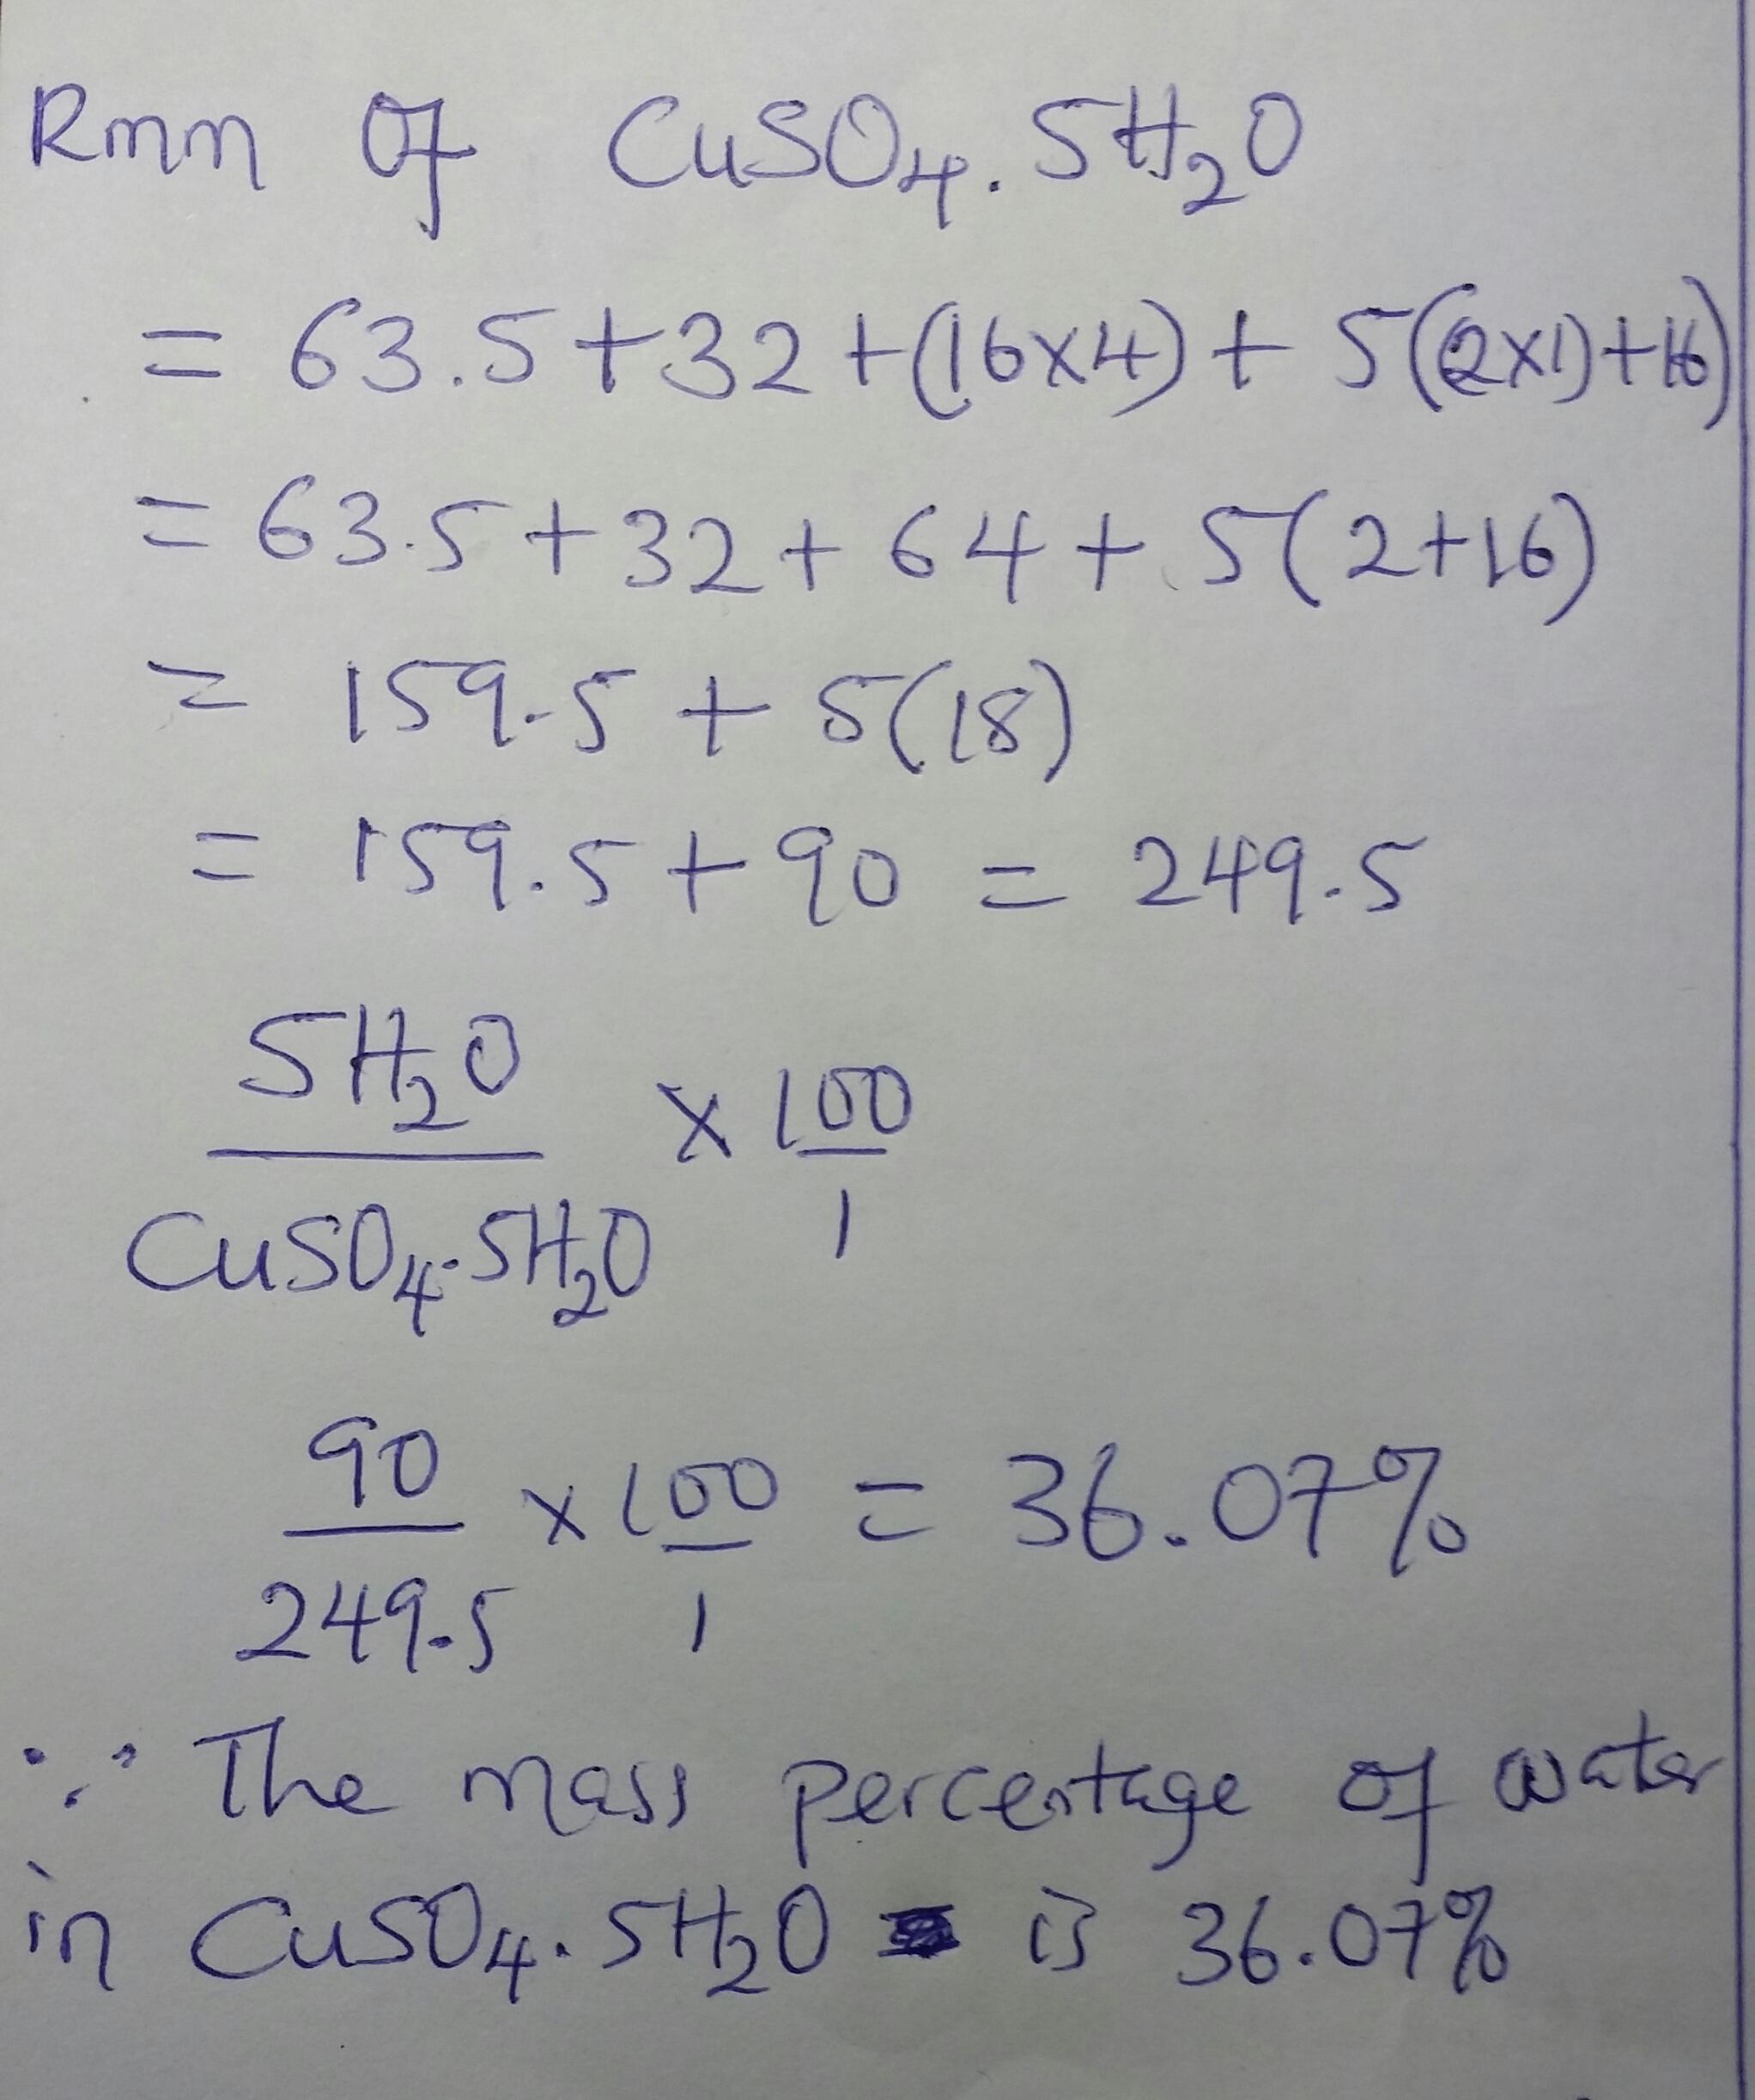 Rmm of CuSO₄.5H₂O
= 63.5+32+(16x4)+5((2x1)+16)
= 63.5+32+64+5(2+16)
= 159.5+5(18)
= 159.5+90 = 249.5
5H₂O
x 100
1
CuSO₄.5H₂O
90
x 100 = 36.07%
249.5 1
∵ The mass percentage of water
in CuSO₄.5H₂O is 36.07%